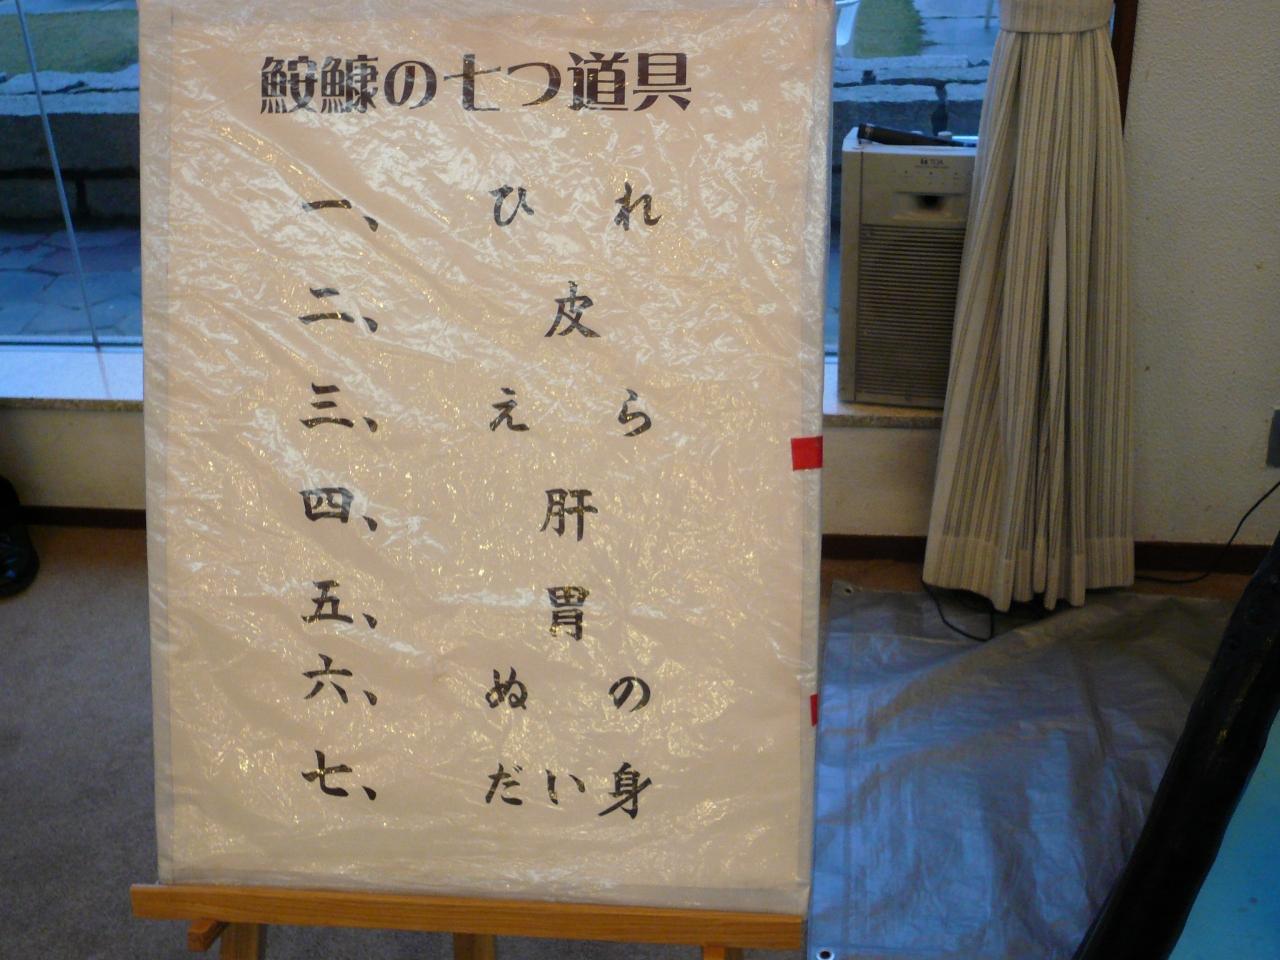 鮟鱇の七つ道具
一、ひれ
二、皮
三、えら
四、肝
五、胃
六、ぬの
七、だい身
TOA